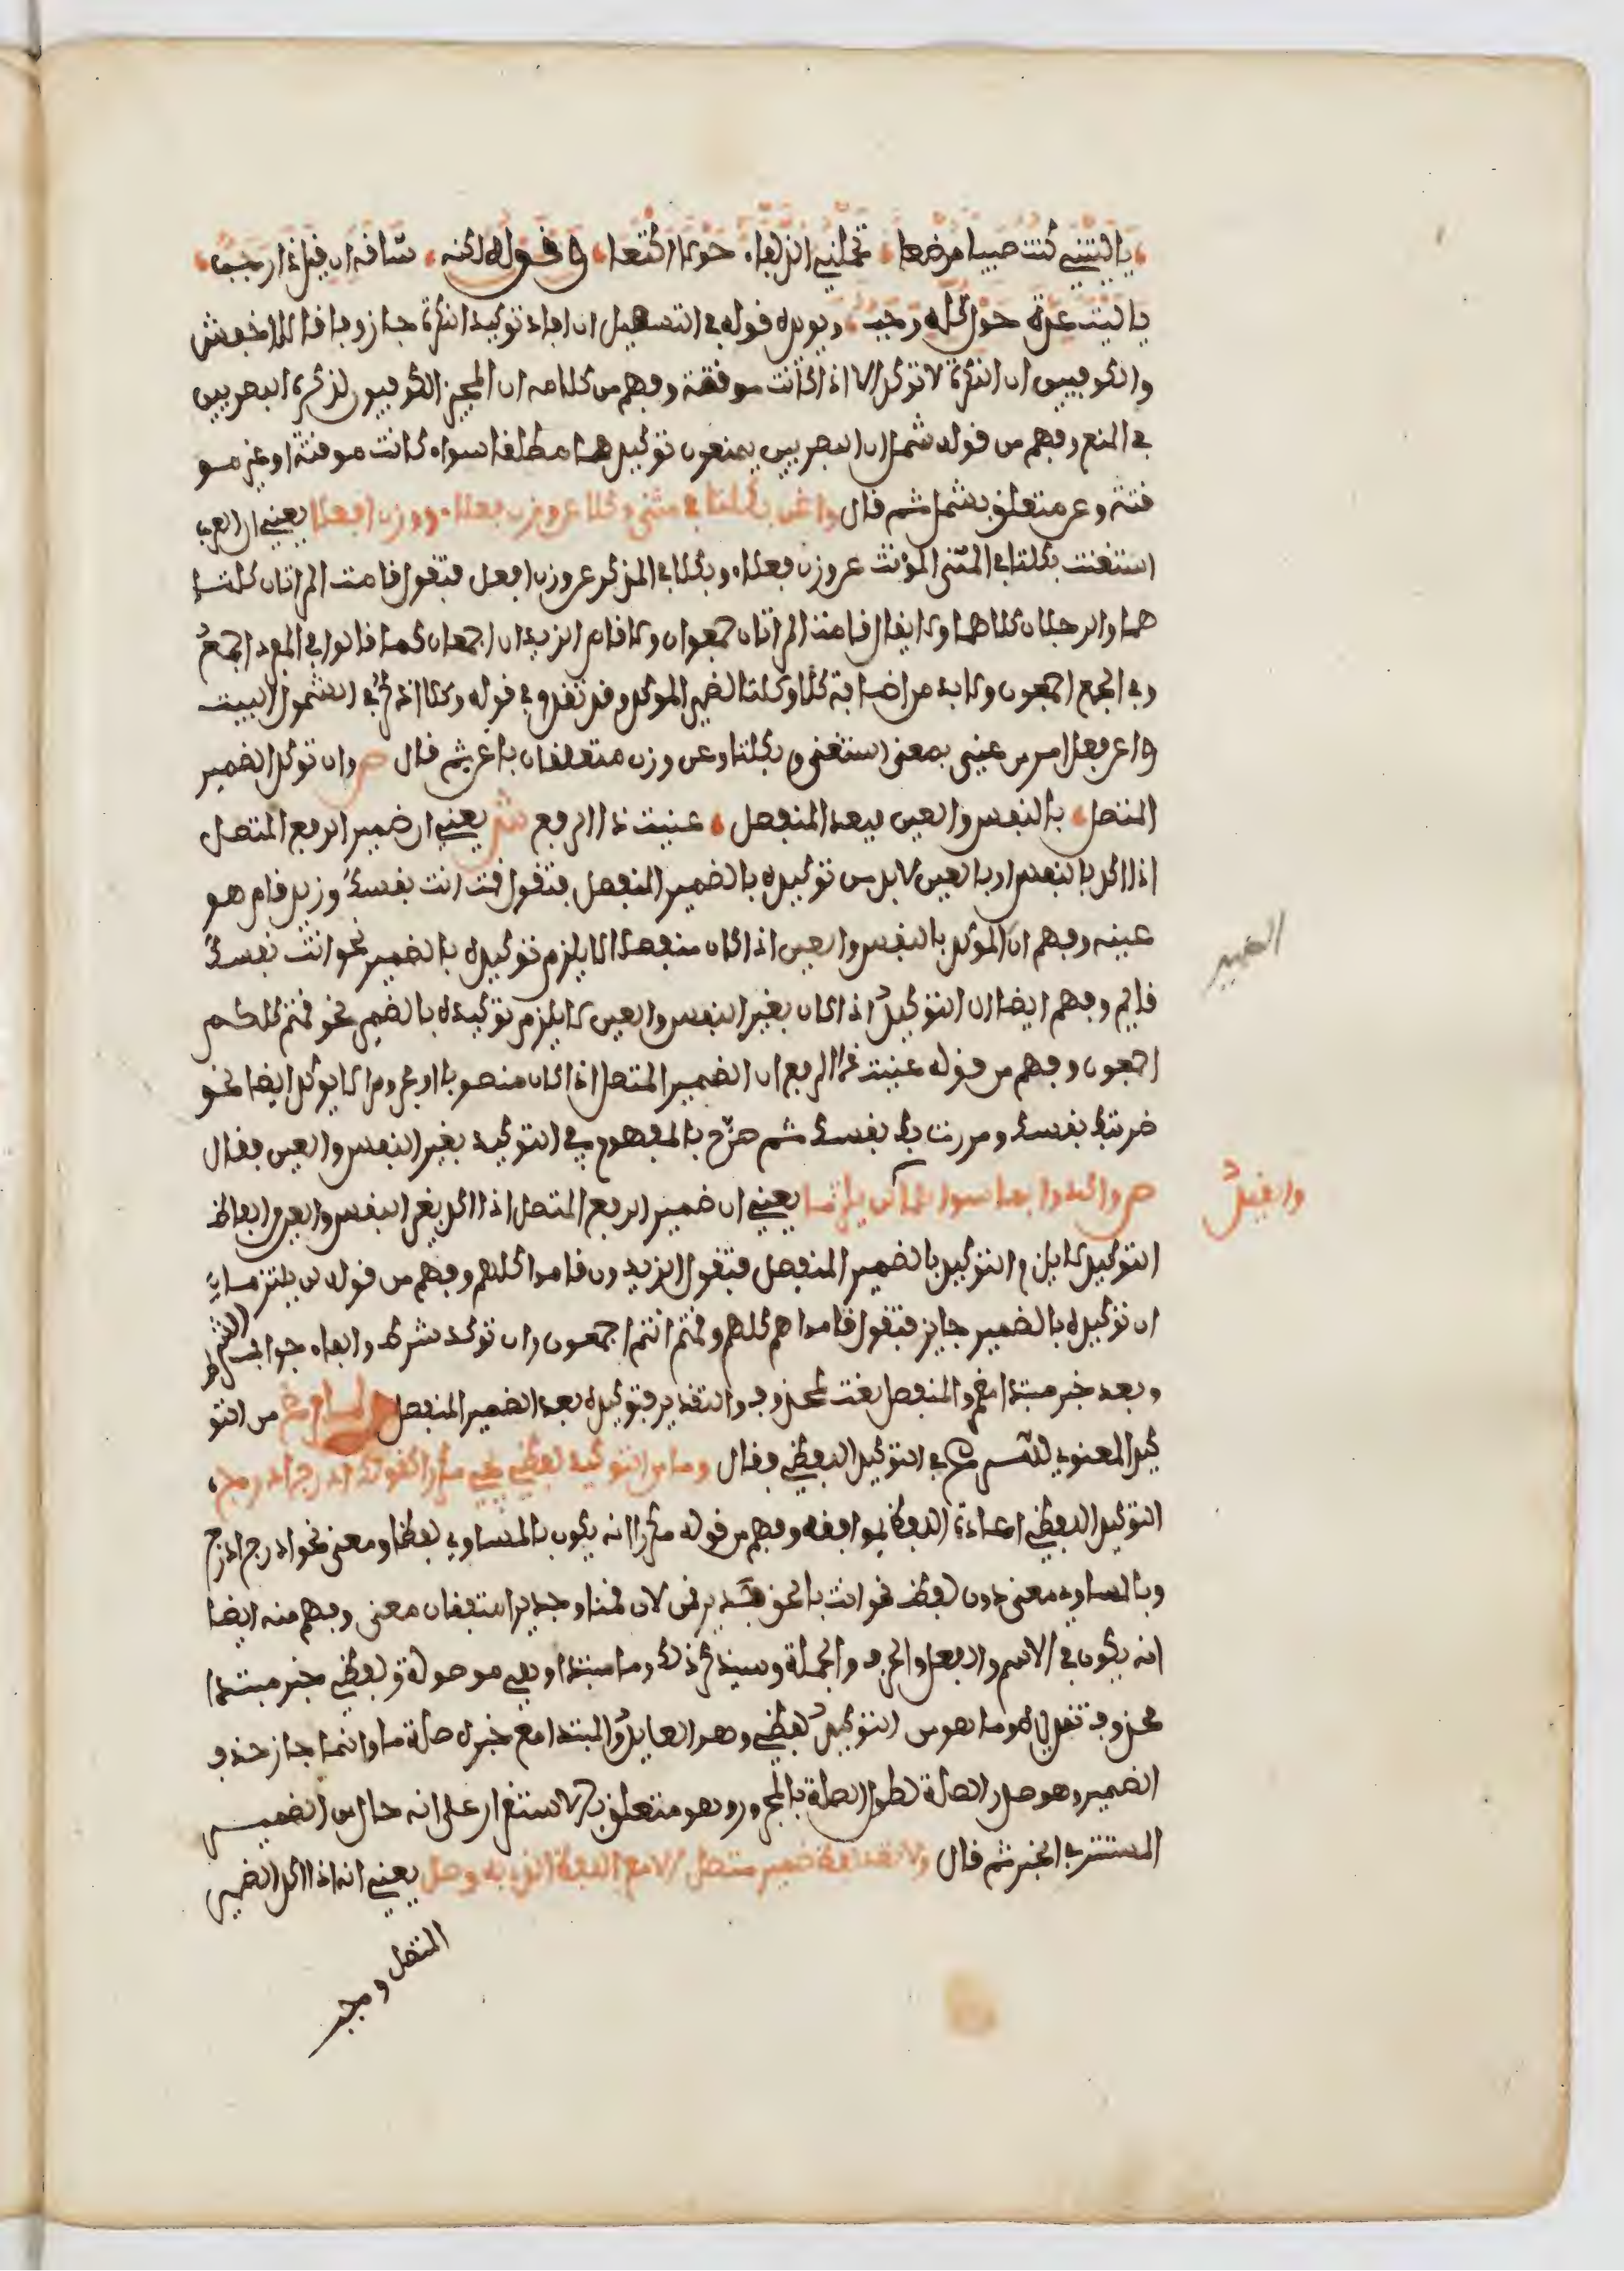 يا ليتني كنت صبيا مرضعا تحملني الذلفاء حولا اكتعا وقوله لكنه شاقه ان قيل ذا رجب
يا ليت عدة حول كله رجب ويويده قوله في التسهيل ان افاد توكيد النكرة جاز وفاقا للاخفش
والكوفيين ان النكرة لا توكد الا اذا كانت موقتة وفهم من كلامه ان المجيز الكوفيون لذكره البصريين
في المنع وفهم من قوله شمل ان البصريين يمنعون توكيدها مطلقا سواء كانت موقتة او غير مو
قتة وعن متعلق بشمل ثم قال واغن بكلتا في مثنى وكلا عن وزن فعلاء ووزن افعلا يعني ان العرب
استغنت بكلتا في المثنى المؤنث عن وزن فعلاء وبكلا في المذكر عن وزن افعل فتقول قامت المراتان كلتا
هما والرجلان كلاهما ولا يقال قامت المراتان جمعوان ولا قام الزيدان اجمعان كما قالوا في المفرد اجمع
وفي الجمع اجمعون ولا بد من اضافة كلا وكلتا لضمير الموكد وقد تقدم في قوله وكلا اذكر في الشمول البيت
واغن فعل امر من غني بمعنى استغنى وبكلتا وعن وزن متعلقان باغن ثم قال ص وان توكد الضمير
المتصل بالنفس والعين فبعد المنفصل عنيت ذا الرفع ش يعني ان ضمير الرفع المتصل
اذا اكد بالنفس او بالعين لا بد من توكيده بالضمير المنفصل فتقول قمت انت نفسك وزيد قام هو
عينه وفهم ان الموكد بالنفس والعين اذا كان منفصلا لا يلزم توكيده بالضمير نحو انت نفسك
قايم وفهم ايضا ان التوكيد اذا كان بغير النفس والعين لا يلزم توكيده بالضمير نحو قمتم كلكم
اجمعون وفهم من قوله عنيت ذا الرفع ان الضمير المتصل اذا كان منصوبا او مجرورا لا يوكد ايضا نحو
ضربتك نفسك ومررت بك نفسك ثم صرح بالمفهوم في التوكيد بغير النفس والعين فقال
ص واكدوا بما سواهما لن يلتزما يعني ان ضمير الرفع المتصل اذا اكد بغير النفس والعين من الفاظ
والقيد
التوكيد لا يلزم التوكيد بالضمير المنفصل فتقول الزيدون قاموا كلهم وفهم من قوله لن يلتزما
ان توكيده بالضمير جايز فتقول قاموا هم كلهم وقمتم انتم اجمعون وان توكد شرط والفاء جواب الشرط
وبعد خبر مبتدا مضمر والمنفصل نعت لمحذوف والتقدير فتوكيده بعد الضمير المنفصل من التو
كيد المعنوي شرع في التوكيد اللفظي فقال وما من التوكيد لفظي يجي مكررا كقولك ادرجي ادرجي
التوكيد اللفظي اعادة اللفظ بموافقه وفهم من قوله مكررا انه يكون بالمساوي لفظا ومعنى نحو ادرج ادرج
وبالمساوي معنى دون لفظ نحو انت بالخير حقيق قمن لان قمنا وجديرا متفقان معنى وفهم منه ايضا
انه يكون في الاسم والفعل والحرف والجملة وسيذكر ذلك وما مبتدا وهي موصولة ولفظي خبر مبتدا
محذوف تقديره هو وما هو من التوكيد لفظي وهو العايد والمبتدا مع خبره صلة ما وانما جاز حذف
الضمير وهو صدر الصلة لطول الصلة بالمجرور وهو متعلق بالاستقرار على انه حال من الضمير
المستتر في الخبر ثم قال ولا تعد لفظ ضمير متصل الا مع اللفظ الذي به وصل يعني انه اذا اكد الضمير
المتصل وجب
الضمير